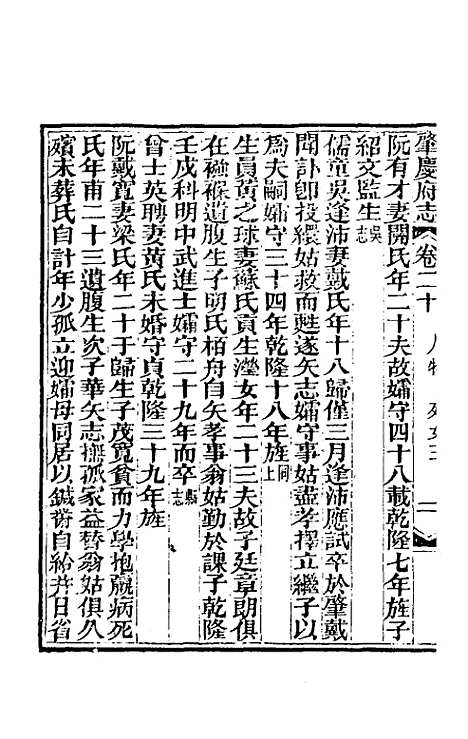 肇慶府志 卷二十 人物 列女三 二
阮有才妻關氏年二十夫故孀守四十八載乾隆七年旌子
紹文監生吳志
儒童吳逢沛妻戴氏年十八歸僅三月逢沛應試卒於肇戴
聞訃卽投繯姑救而甦遂矢志孀守事姑盡孝擇立繼子以
為夫嗣孀守三十四年乾隆十八年旌同上
生員黃之球妻蘇氏貢生瀅女年二十三夫故子廷章朗俱
在襁褓遺腹生子明氏栢舟自矢孝事翁姑勤於課子乾隆
壬戌科明中武進士孀守二十九年而卒縣志
曾士英聘妻黃氏未婚守貞乾隆三十九年旌
阮戴寬妻梁氏年二十于歸生子茂寬貧而力學抱羸病死
氏年甫二十三遺腹生次子華矢志撫孤家益替翁姑俱久
殯未葬氏自計年少孤立迎孀母同居以鍼黹自給井臼省